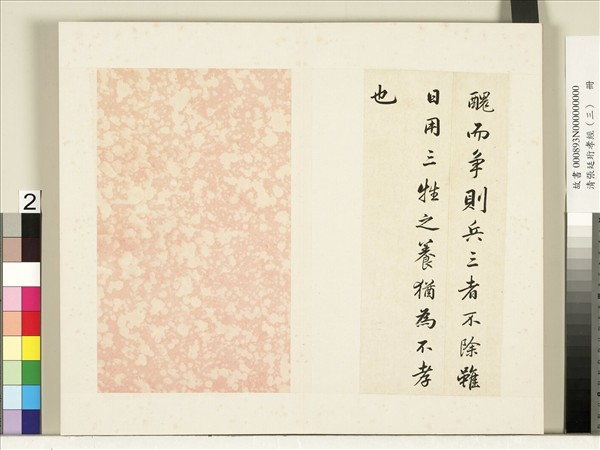 醜而爭則兵三者不除雖
日用三牲之養猶為不孝
也
故書000893N000000000
清張廷珩孝經（三） 冊
2